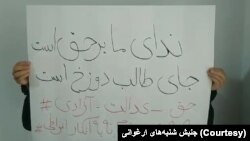 ندای ما برحق است
جای طالب دوزخ است
حق - عدالت - آزادی #
(Courtesy) جنبش شنبه‌های ارغوانی